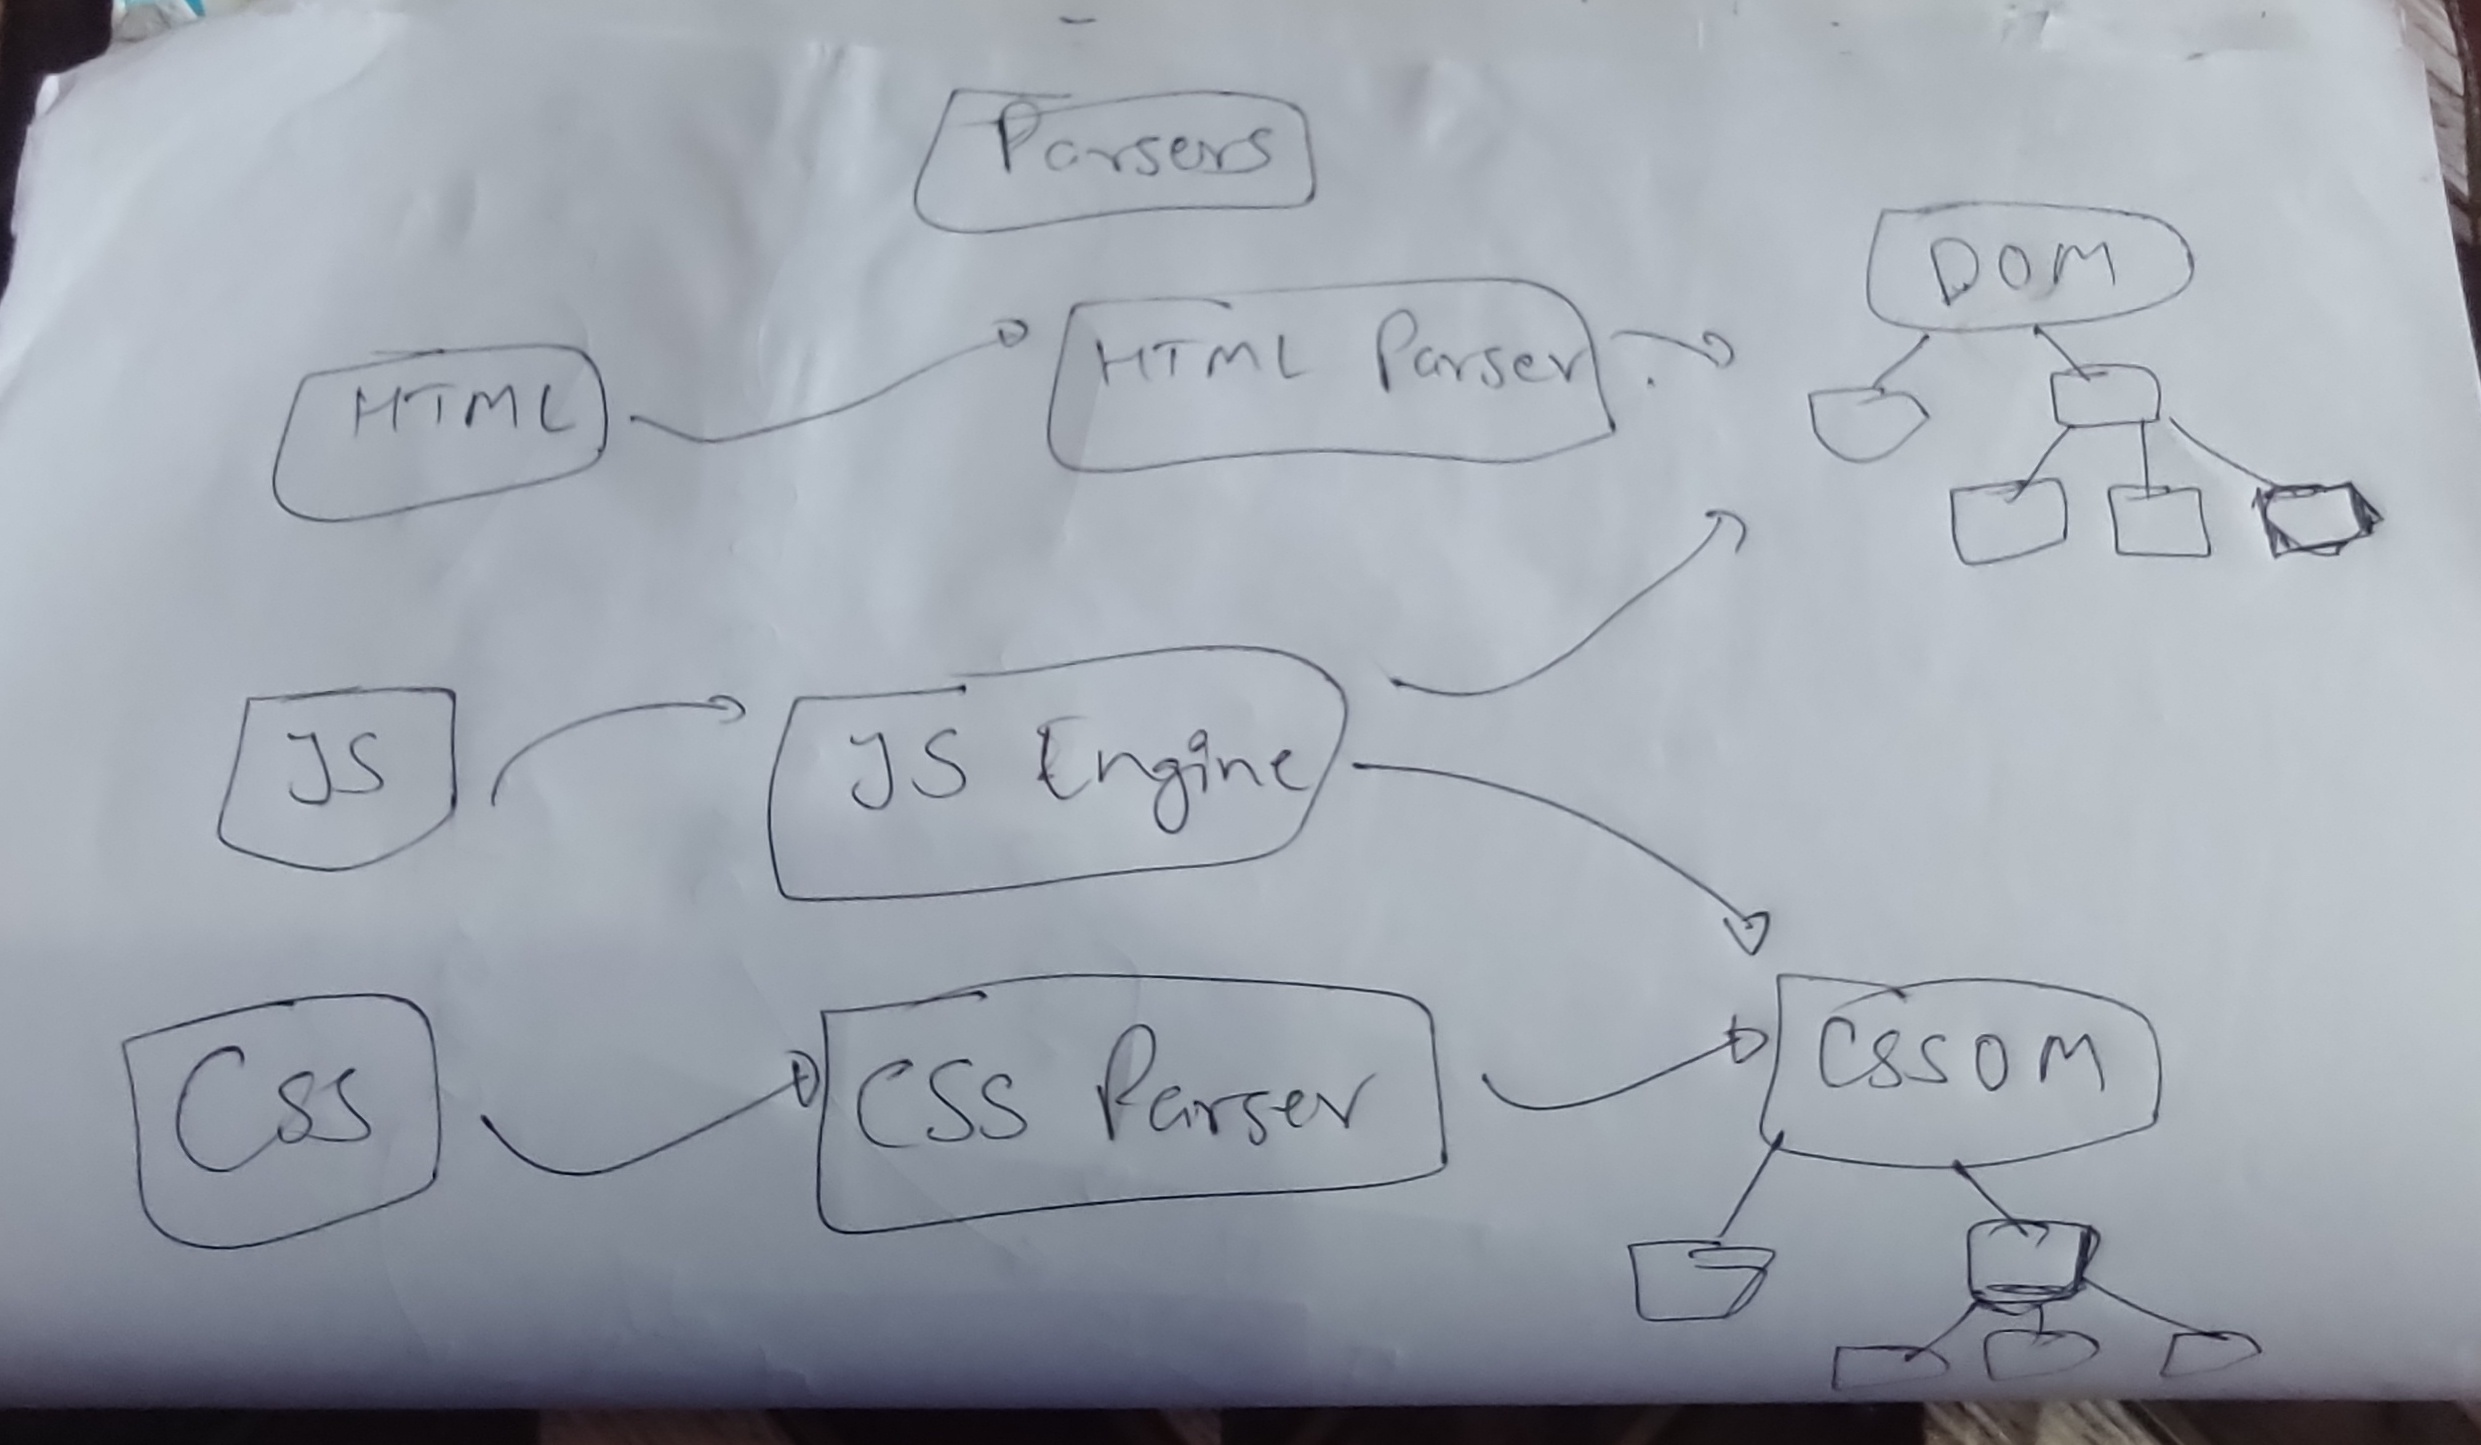 Parsers
DOM
HTML
HTML Parser
JS
JS Engine
CSS
CSS Parser
CSSOM